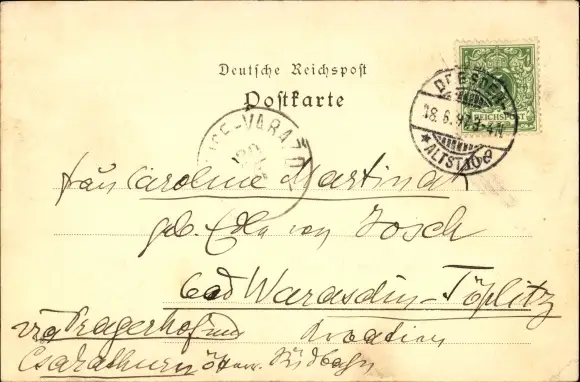 Deutsche Reichspost
Postkarte
REICHSPOST
DRESDEN
18.6.97.3-4N
* ALTST. 10 e
-VARA
Frau Caroline Martinat
geb. Edle von Josch
Bad Warasdin-Töplitz
via Pragerhof und Kroatien
Csarathurn österr. Südbahn